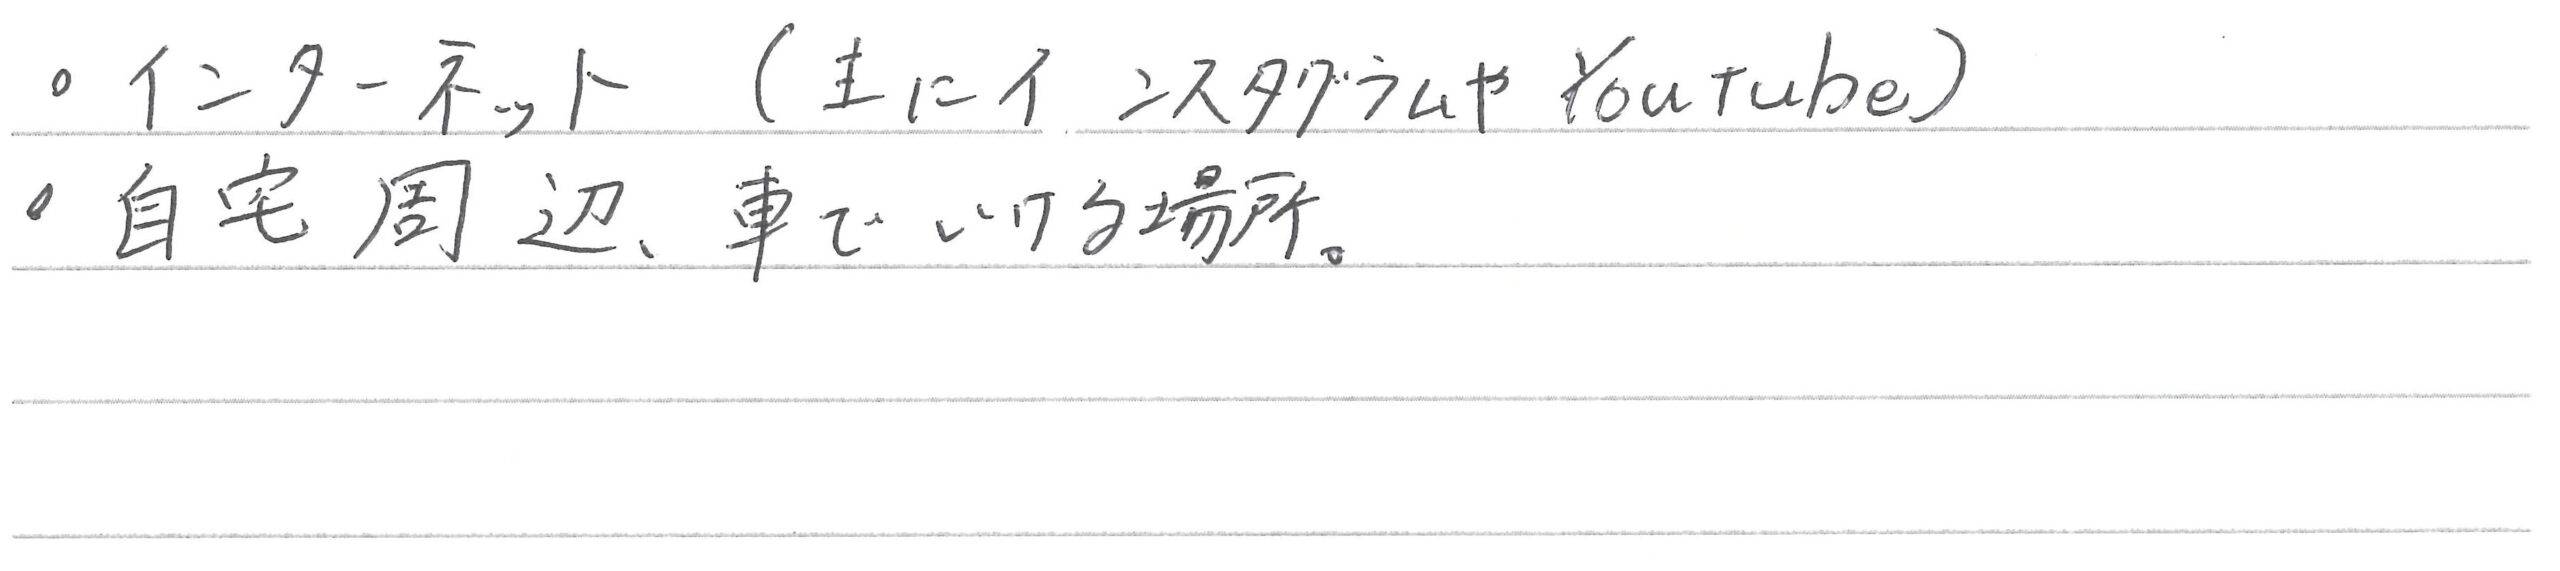 ・インターネット (主にインスタグラムやYouTube)
・自宅周辺、車でいける場所。